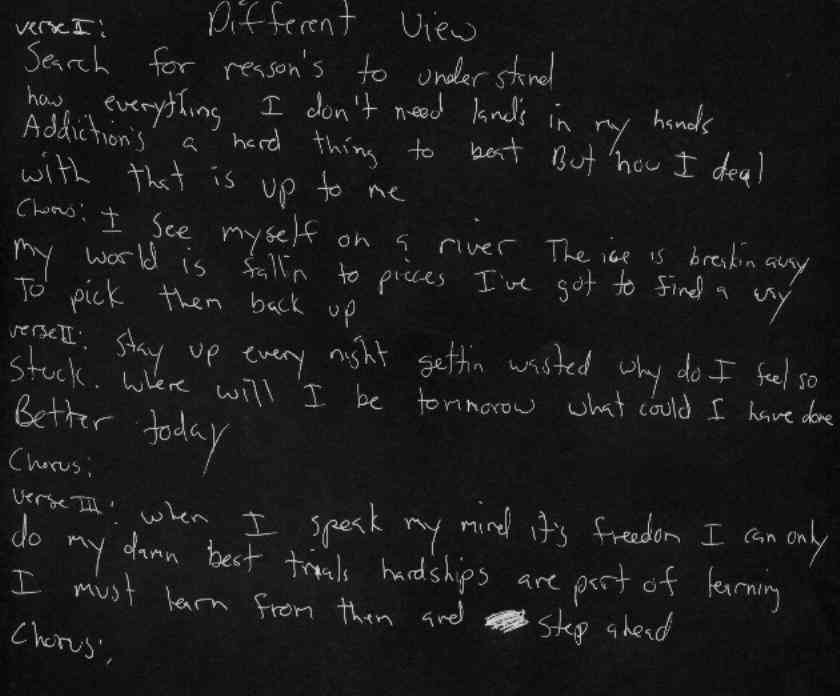 Different View
verse I:
Search for reason's to understand
how everything I don't need land's in my hands
Addiction's a hard thing to beat But how I deal
with that is up to me
Chorus: I See myself on a river The ice is breakin away
my world is fallin to pieces I've got to find a way
To pick them back up
verse II: Stay up every night gettin wasted why do I feel so
Stuck. where will I be tommorow what could I have done
Better today
Chorus:
verse III: when I speak my mind it's freedom I can only
do my damn best trials hardships are part of learning
I must learn from them and step ahead
Chorus: